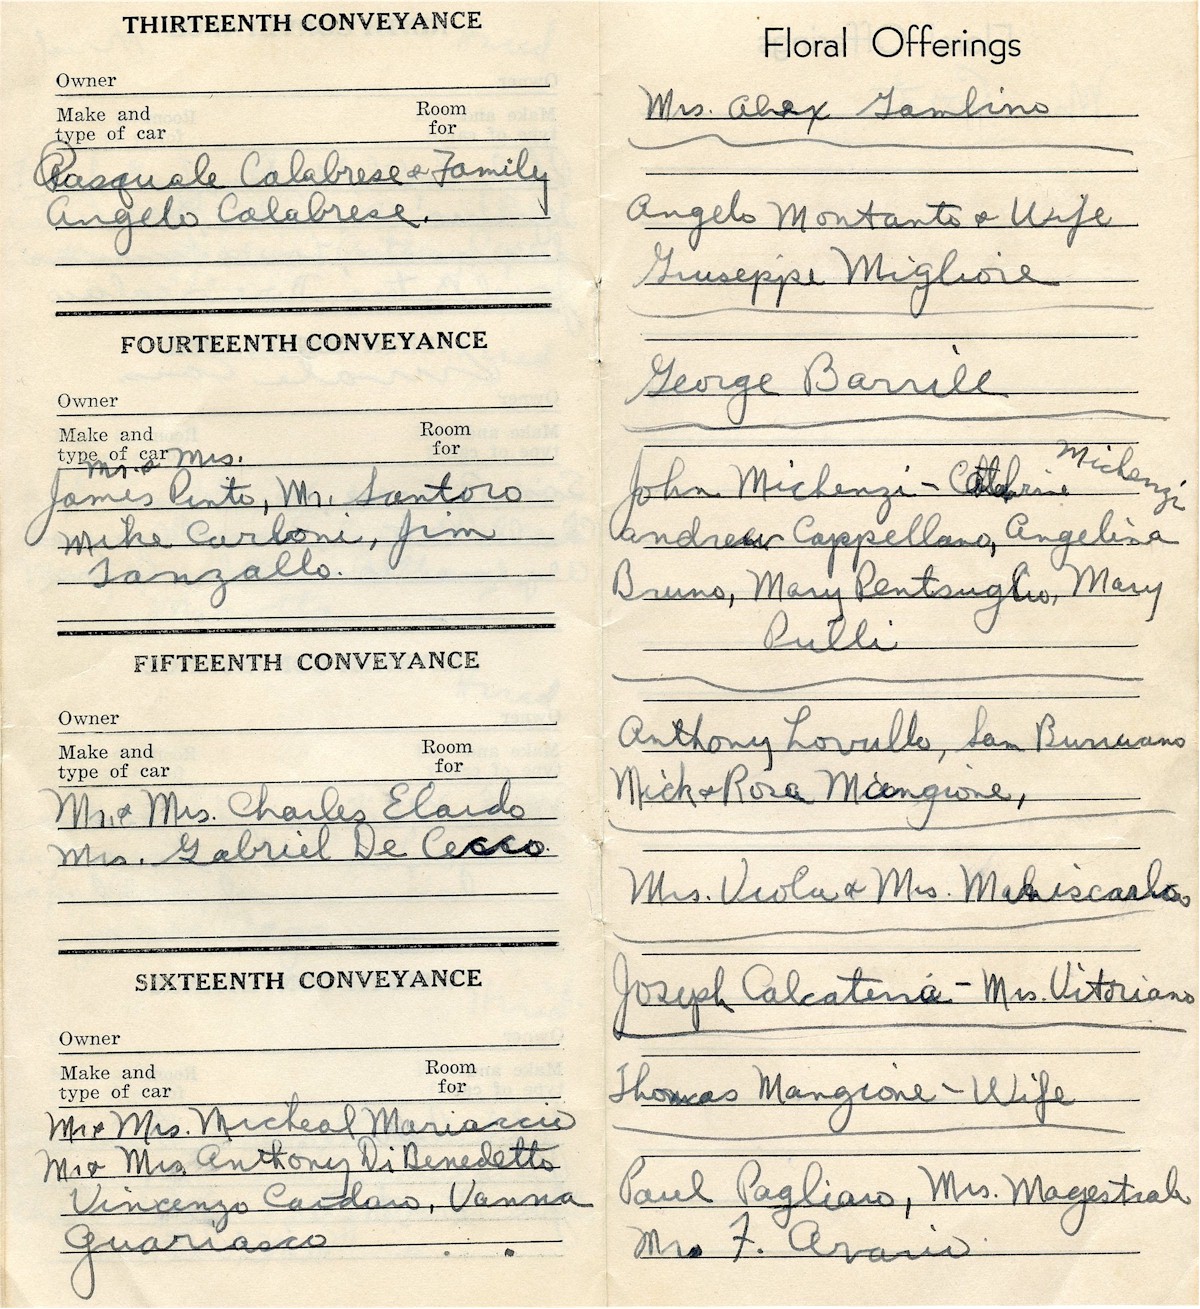 THIRTEENTH CONVEYANCE
Owner
Make and Room
type of car for
Pasquale Calabrese & Family
Angelo Calabrese.
FOURTEENTH CONVEYANCE
Owner
Make and Room
type of car for
Mr. & Mrs.
James Pinto, Mr. Santoro
Mike Carboni, Jim
Tanzallo.
FIFTEENTH CONVEYANCE
Owner
Make and Room
type of car for
Mr. & Mrs. Charles Elardo
Mrs. Gabriel De Cecco.
SIXTEENTH CONVEYANCE
Owner
Make and Room
type of car for
Mr & Mrs. Micheal Mariaccio
Mr & Mrs Anthony Di Benedetto
Vincenzo Cardaro, Vanna
Guariasco
Floral Offerings
Mrs. Alex Gambino
Angelo Montanto & Wife
Giuseppe Migliore
George Barrile
John Michenzi - Michenzi
Andrew Cappellano, Angelina
Bruno, Mary Pentsuglio, Mary
Pulli
Anthony Lovullo, Sam Burruano
Mick & Rose Mangione,
Mrs. Viola & Mrs.
Joseph Calcaterra - Mrs. Vitoriano
Thomas Mangione - Wife
Paul Pagliaro, Mrs. Magestrale
Mrs F.